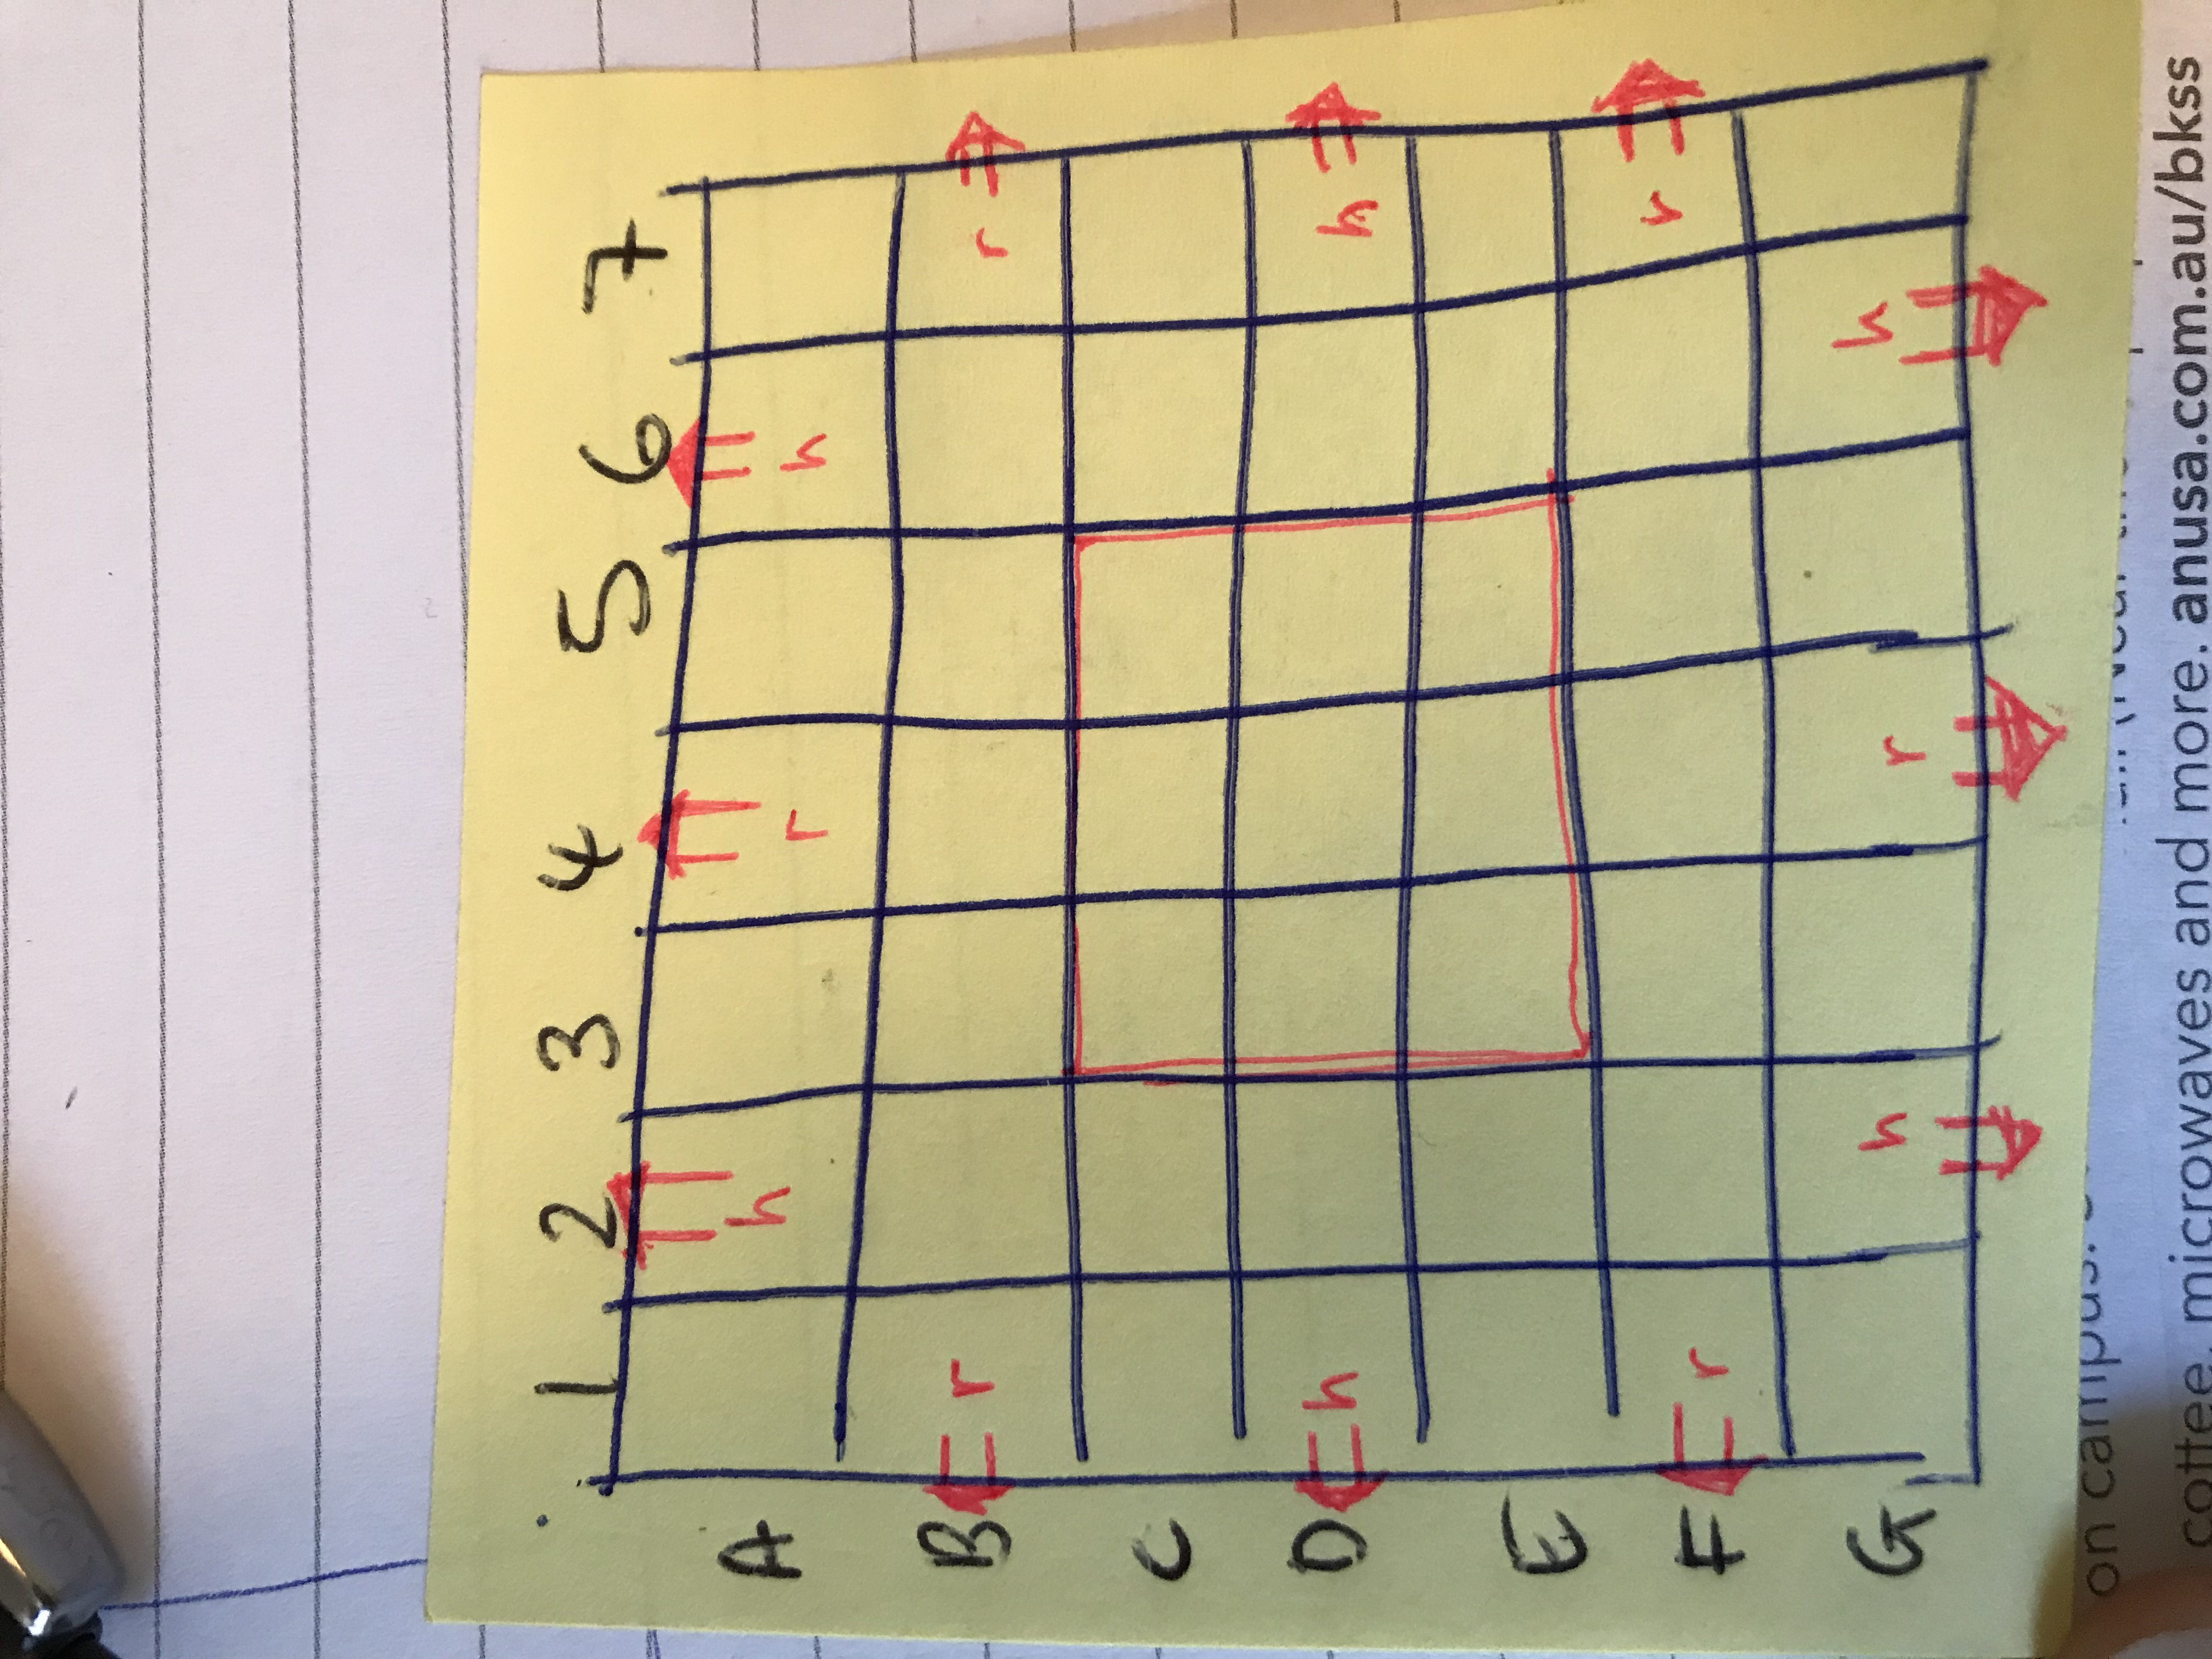 1 2 3 4 5 6 7
A h r h
B r r
C
D h h
E
F r r
G h r h
on campus.
coffee, microwaves and more. anusa.com.au/bkss